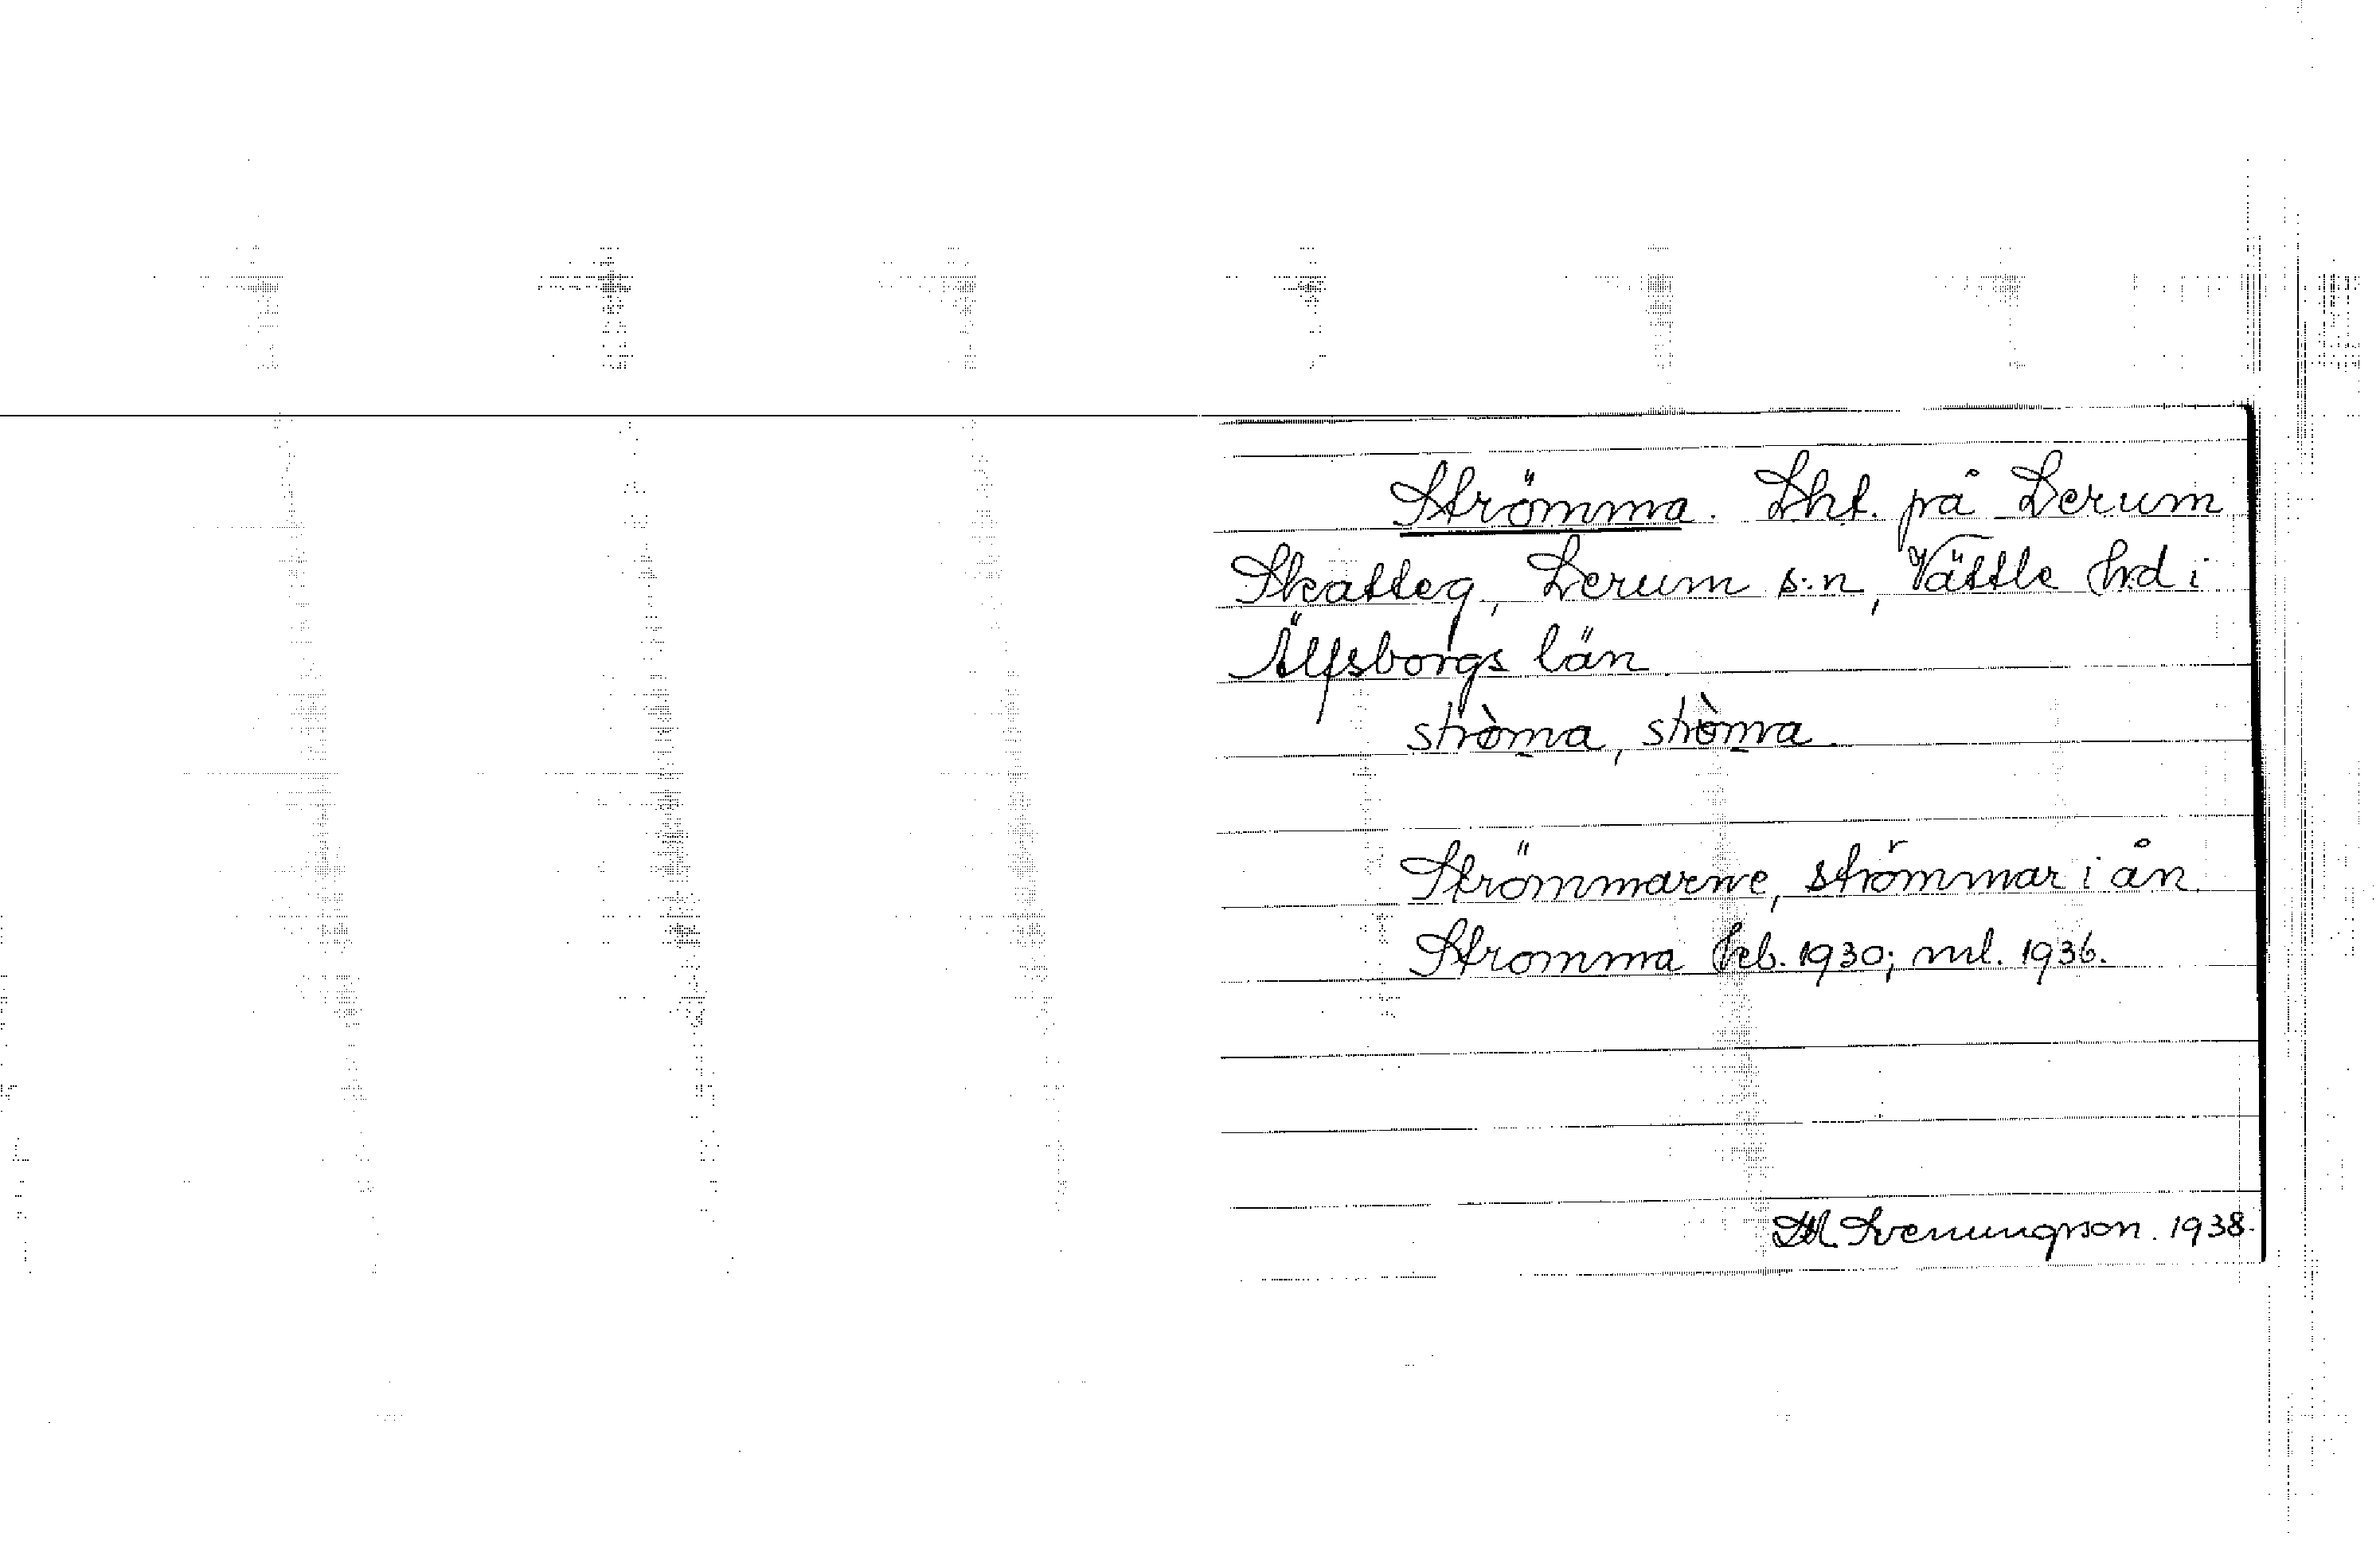 Strömma. Lht. på Lerum
Skatteg, Lerum s:n, Vättle hrd i
Älfsborgs län
stròma, stròma
Strömmarne, strömmar i ån.
Stromma Jeb. 1930; ml. 1936.
IM Svenungson. 1938.